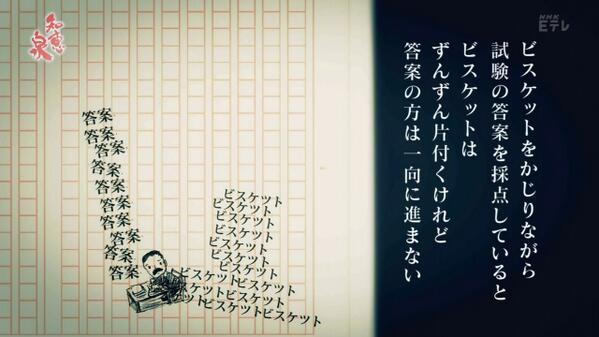 知恵泉
NHK Eテレ
ビスケットをかじりながら
試験の答案を採点していると
ビスケットは
ずんずん片付くけれど
答案の方は一向に進まない
答案
答案
答案
答案
答案
答案
答案
答案
答案
答案
ビスケット
ビスケット
ビスケット
ビスケット
ビスケット
ビスケット
ビスケット
ビスケットビスケット
ビスケットビスケット
ケットビスケットビスケット